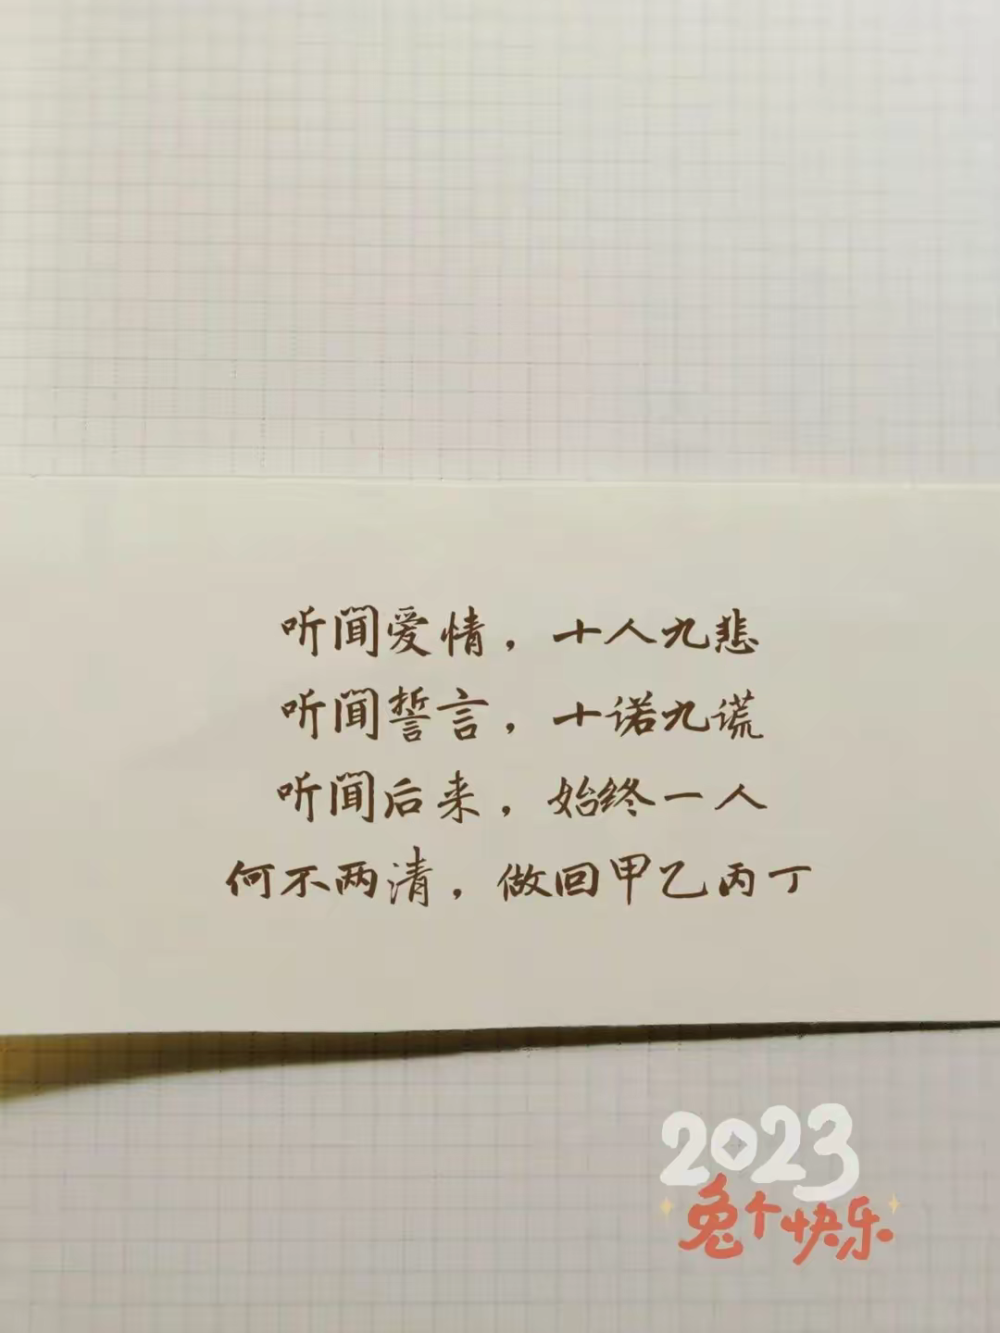 听闻爱情，十人九悲
听闻誓言，十诺九谎
听闻后来，始终一人
何不两清，做回甲乙丙丁
2023
兔个快乐